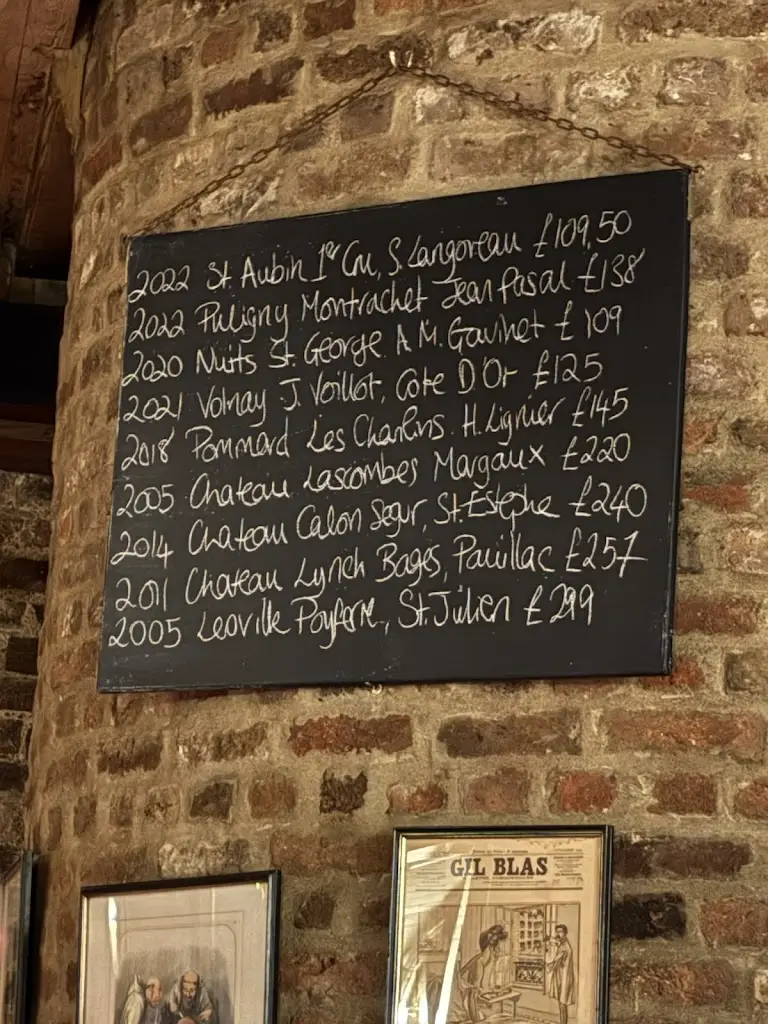 2022 St. Aubin 1er Cru, S. Langoreau £109,50
2022 Puligny Montrachet Jean Pasal £138
2020 Nuits St. George A M. Gavinet £109
2021 Volnay J. Voillot, Cote D'Or £125
2018 Pommard Les Chanlins H. Lignier £145
2005 Chateau Lascombes Margaux £220
2014 Chateau Calon Segur, St. Estephe £240
2011 Chateau Lynch Bages, Pauillac £257
2005 Leoville Poyferre, St. Julien £299
GIL BLAS